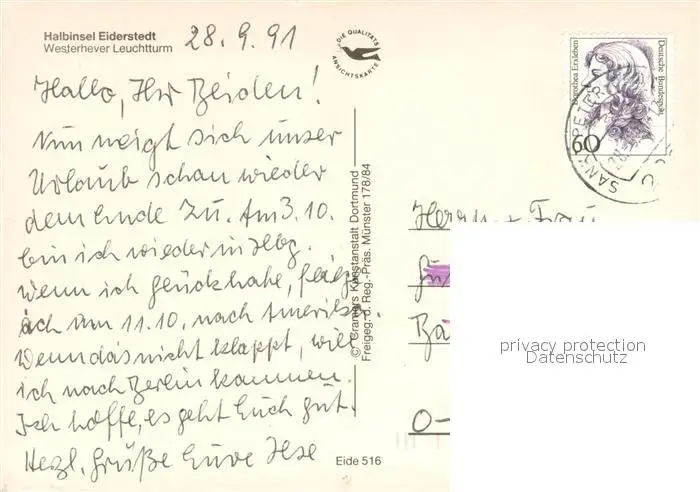 Halbinsel Eiderstedt
Westerhever Leuchtturm
28.9.91
DIE QUALITÄTS
ANSICHTSKARTE
Hallo, Ihr Beiden!
Nun neigt sich unser
Urlaub schon wieder
dem Ende zu. Am 3.10.
bin ich wieder in Hbg.
Wenn ich Glück habe, fliege
ich am 11.10. nach Amerika.
Wenn das nicht klappt, will
ich nach Berlin kommen.
Ich hoffe, es geht Euch gut.
Herzl. Grüße Eure Ilse
© Cramers Kunstanstalt Dortmund
Freigeg. d. Reg.-Präs. Münster 178/84
Eide 516
Dorothea Erxleben
Deutsche Bundespost
60
SANKT PETER
Herrn + Frau
O-
privacy protection
Datenschutz